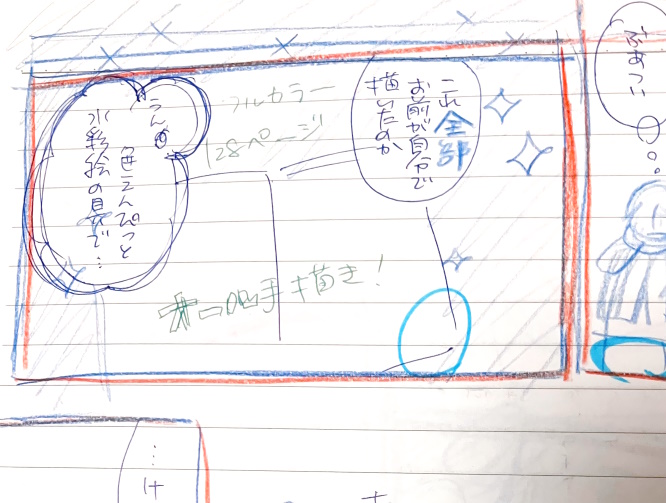 ぶあつい
これ全部
お前が自分で
描いたのか
フルカラー
128ページ
うん
色えんぴつと
水彩絵の具で…
手描き!
…け